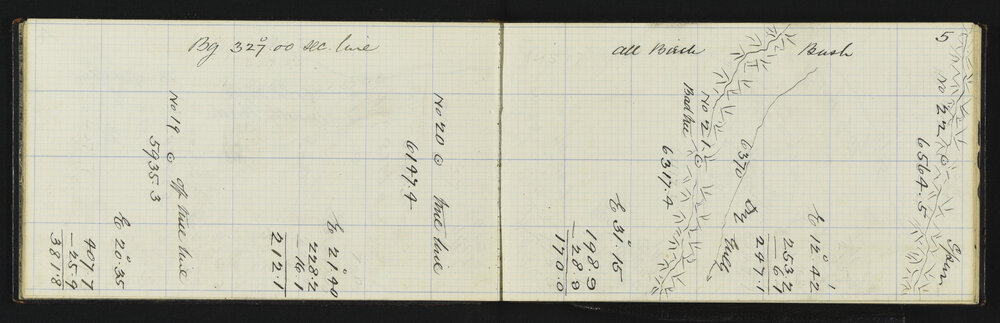 Bg 327°.00 sec. line
No 19 ⊙ off true line
5935.3
E 20°.35
407.7
-25.9
381.8
No 20 ⊙ true line
6147.4
E 21°.40
228.2
-16.1
212.1
all Birch Bush
5
Bad line
No 21 ⊙
6317.4
E 31°.15
198.9
-28.9
170.0
6370
Dry Gully
E 12°.42
253.2
-6.1
247.1
No 22 ⊙ Spur
6564.5